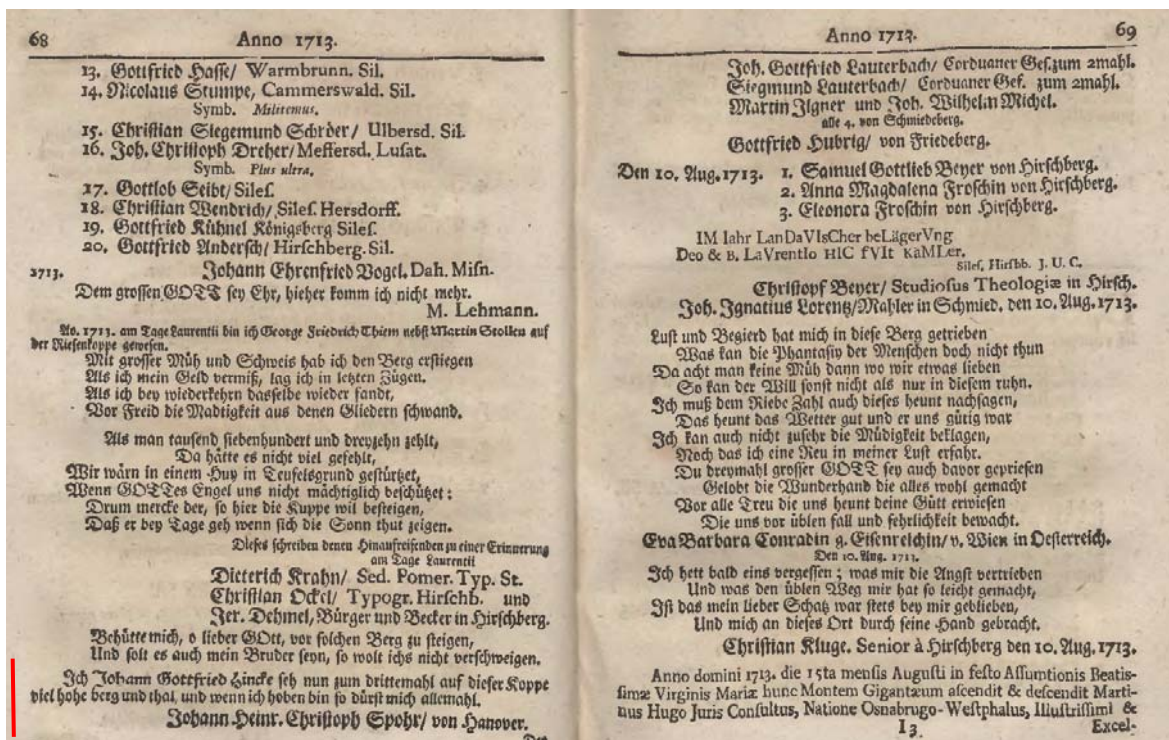 68 Anno 1713.
13. Gottfried Hasse/ Warmbrunn. Sil.
14. Nicolaus Stumpe, Cammerswald. Sil.
Symb. Militemus.
15. Christian Siegemund Schröer/ Ulbersd. Sil.
16. Joh. Christoph Dreher/ Meffersd. Lusat.
Symb. Plus ultra.
17. Gottlob Seibt/ Siles.
18. Christian Wendrich/ Siles. Hersdorff.
19. Gottfried Kühnel Königsberg Siles.
20. Gottfried Andersch/ Hirschberg. Sil.
1713. Johann Ehrenfried Vogel. Dah. Misn.
Dem grossen GOTT sey Ehr, hieher komm ich nicht mehr.
M. Lehmann.
Ao. 1713. am Tage Laurentii bin ich George Friedrich Thiem nebst Martin Stollen auf
der Riesenkoppe gewesen.
Mit grosser Müh und Schweis hab ich den Berg erstiegen
Als ich mein Geld vermiß, lag ich in letzten Zügen.
Als ich bey wiederkehrn dasselbe wieder fandt,
Vor Freid die Madtigkeit aus denen Gliedern schwand.
Als man tausend siebenhundert und dreyzehn zehlt,
Da hätte es nicht viel gefehlt,
Wir wärn in einem Huy in Teufelsgrund gestürtzet,
Wenn GOTTes Engel uns nicht mächtiglich beschützet:
Drum mercke der, so hier die Kuppe wil besteigen,
Daß er bey Tage geh wenn sich die Sonn thut zeigen.
Dieses schreiben denen Hinaufreisenden zu einer Erinnerung
am Tage Laurentii
Dieterich Krahn/ Sed. Pomer. Typ. St.
Christian Ockel/ Typogr. Hirschb. und
Jer. Dehmel, Bürger und Becker in Hirschberg.
Behütte mich, o lieber GOtt, vor solchen Berg zu steigen,
Und solt es auch mein Bruder seyn, so wolt ichs nicht verschweigen.
Ich Johann Gottfried Hincke seh nun zum drittemahl auf dieser Koppe
viel hohe berg und thal, und wenn ich hoben bin so dürst mich allemahl.
Johann Heinr. Christoph Spohr/ von Hanover.
Anno 1713. 69
Joh. Gottfried Lauterbach/ Corduaner Ges. zum 2mahl.
Siegmund Lauterbach/ Corduaner Ges. zum 2mahl.
Martin Ilgner und Joh. Wilhelm Michel.
alle 4. von Schmiedeberg.
Gottfried Hubrig/ von Friedeberg.
Den 10. Aug. 1713. 1. Samuel Gottlieb Beyer von Hirschberg.
2. Anna Magdalena Froschin von Hirschberg.
3. Eleonora Froschin von Hirschberg.
IM Iahr LanDaVIsCher beLägerVng
Deo & B. LaVrentIo HIC fVIt KaMLer.
Siles. Hirsbb. J. U. C.
Christopf Beyer/ Studiosus Theologiæ in Hirsch.
Joh. Ignatius Lorentz/ Mahler in Schmied. den 10. Aug. 1713.
Lust und Begierd hat mich in diese Berg getrieben
Was kan die Phantasiy der Menschen doch nicht thun
Da acht man keine Müh dann wo wir etwas lieben
So kan der Will sonst nicht als nur in diesem ruhn.
Ich muß dem Riebe Zahl auch dieses heunt nachsagen,
Das heunt das Wetter gut und er uns gütig war
Ich kan auch nicht zusehr die Müdigkeit beklagen,
Noch das ich eine Reu in meiner Lust erfahr.
Du dreymahl grosser GOTT sey auch davor gepriesen
Gelobt die Wunderhand die alles wohl gemacht
Vor alle Treu die uns heunt deine Gütt erwiesen
Die uns vor üblen fall und fehrlichkeit bewacht.
Eva Barbara Conradin g. Eisenreichin/ v. Wien in Oesterreich.
Den 10. Aug. 1713.
Ich hett bald eins vergessen; was mir die Angst vertrieben
Und was den üblen Weg mir hat so leicht gemacht,
Ist das mein lieber Schatz war stets bey mir geblieben,
Und mich an dieses Ort durch seine Hand gebracht.
Christian Kluge. Senior à Hirschberg den 10. Aug. 1713.
Anno domini 1713. die 15ta mensis Augusti in festo Assumtionis Beatis-
simæ Virginis Mariæ hunc Montem Gigantæum ascendit & descendit Marti-
nus Hugo Juris Consultus, Natione Osnabrugo-Westphalus, Illustrissimi &
I 3 Excel-